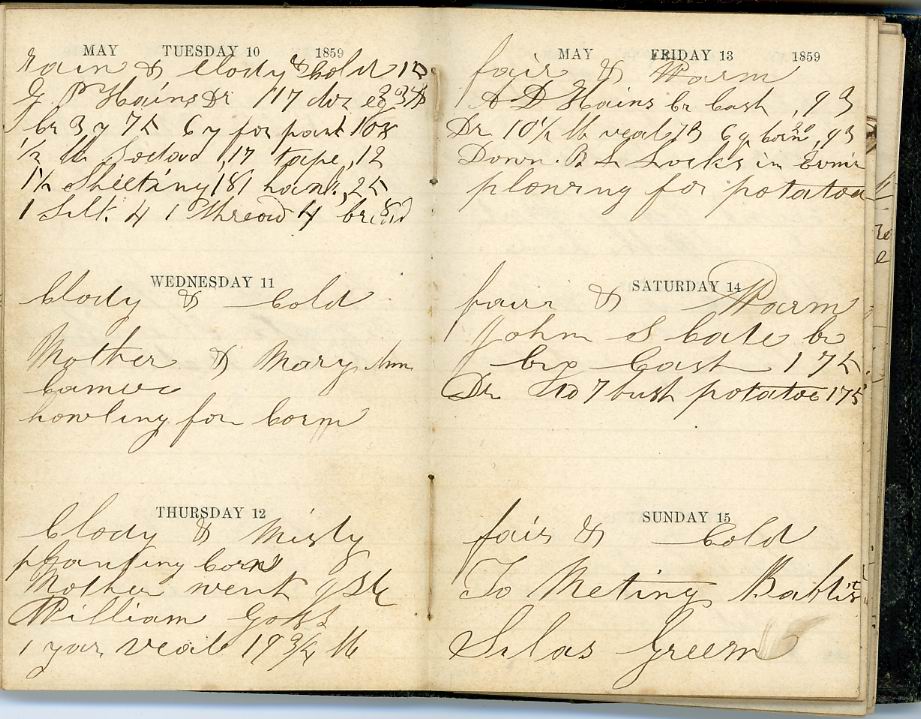 MAY TUESDAY 10 1859
Rain & Clody & Cold 12
G. P Hains Dr 117 doz
Cr 3 y 75 6 y for pant 108
1/2 lb Sodad ,17 tape ,12
1 1/2 Sheeting 181 hank. ,25
1 Silk 4 1 thread 4
WEDNESDAY 11
Clody & Cold
Mother & Mary Ann
Camee
howling for Corn
THURSDAY 12
Clody & Misty
planting Corn
Mother went
William Goss
1 year veal 19 3/4 lb
MAY FRIDAY 13 1859
fair & Warm
A D Hains Cr Cash ,93
Dr 10 1/2 lb veal 73 6 q corn 20 ,93
Down. B L Locks in Evnin
plowing for potatoe
SATURDAY 14
fair & Warm
John S Cate Cr
by Cash 175
Dr to 7 bush potatoe 175
SUNDAY 15
fair & Cold
To Meting Babtist
Silas Green